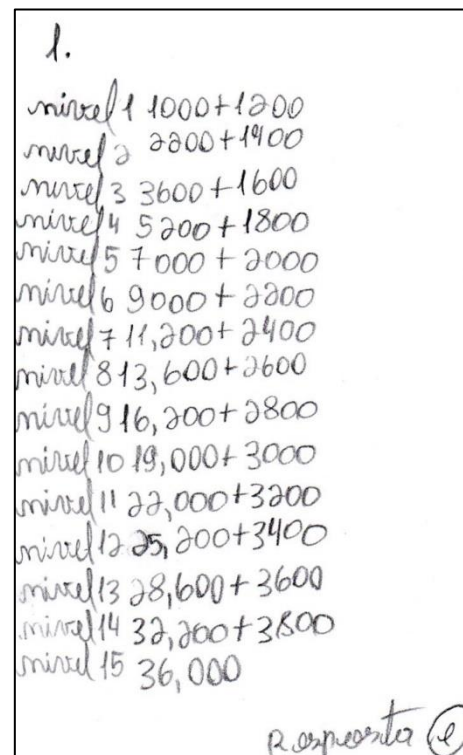 1.
nivel 1 1000+1200
nivel 2 2200+1400
nivel 3 3600+1600
nivel 4 5200+1800
nivel 5 7000+2000
nivel 6 9000+2200
nivel 7 11,200+2400
nivel 8 13,600+2600
nivel 9 16,200+2800
nivel 10 19,000+3000
nivel 11 22,000+3200
nivel 12 25,200+3400
nivel 13 28,600+3600
nivel 14 32,200+3800
nivel 15 36,000
Resposta e